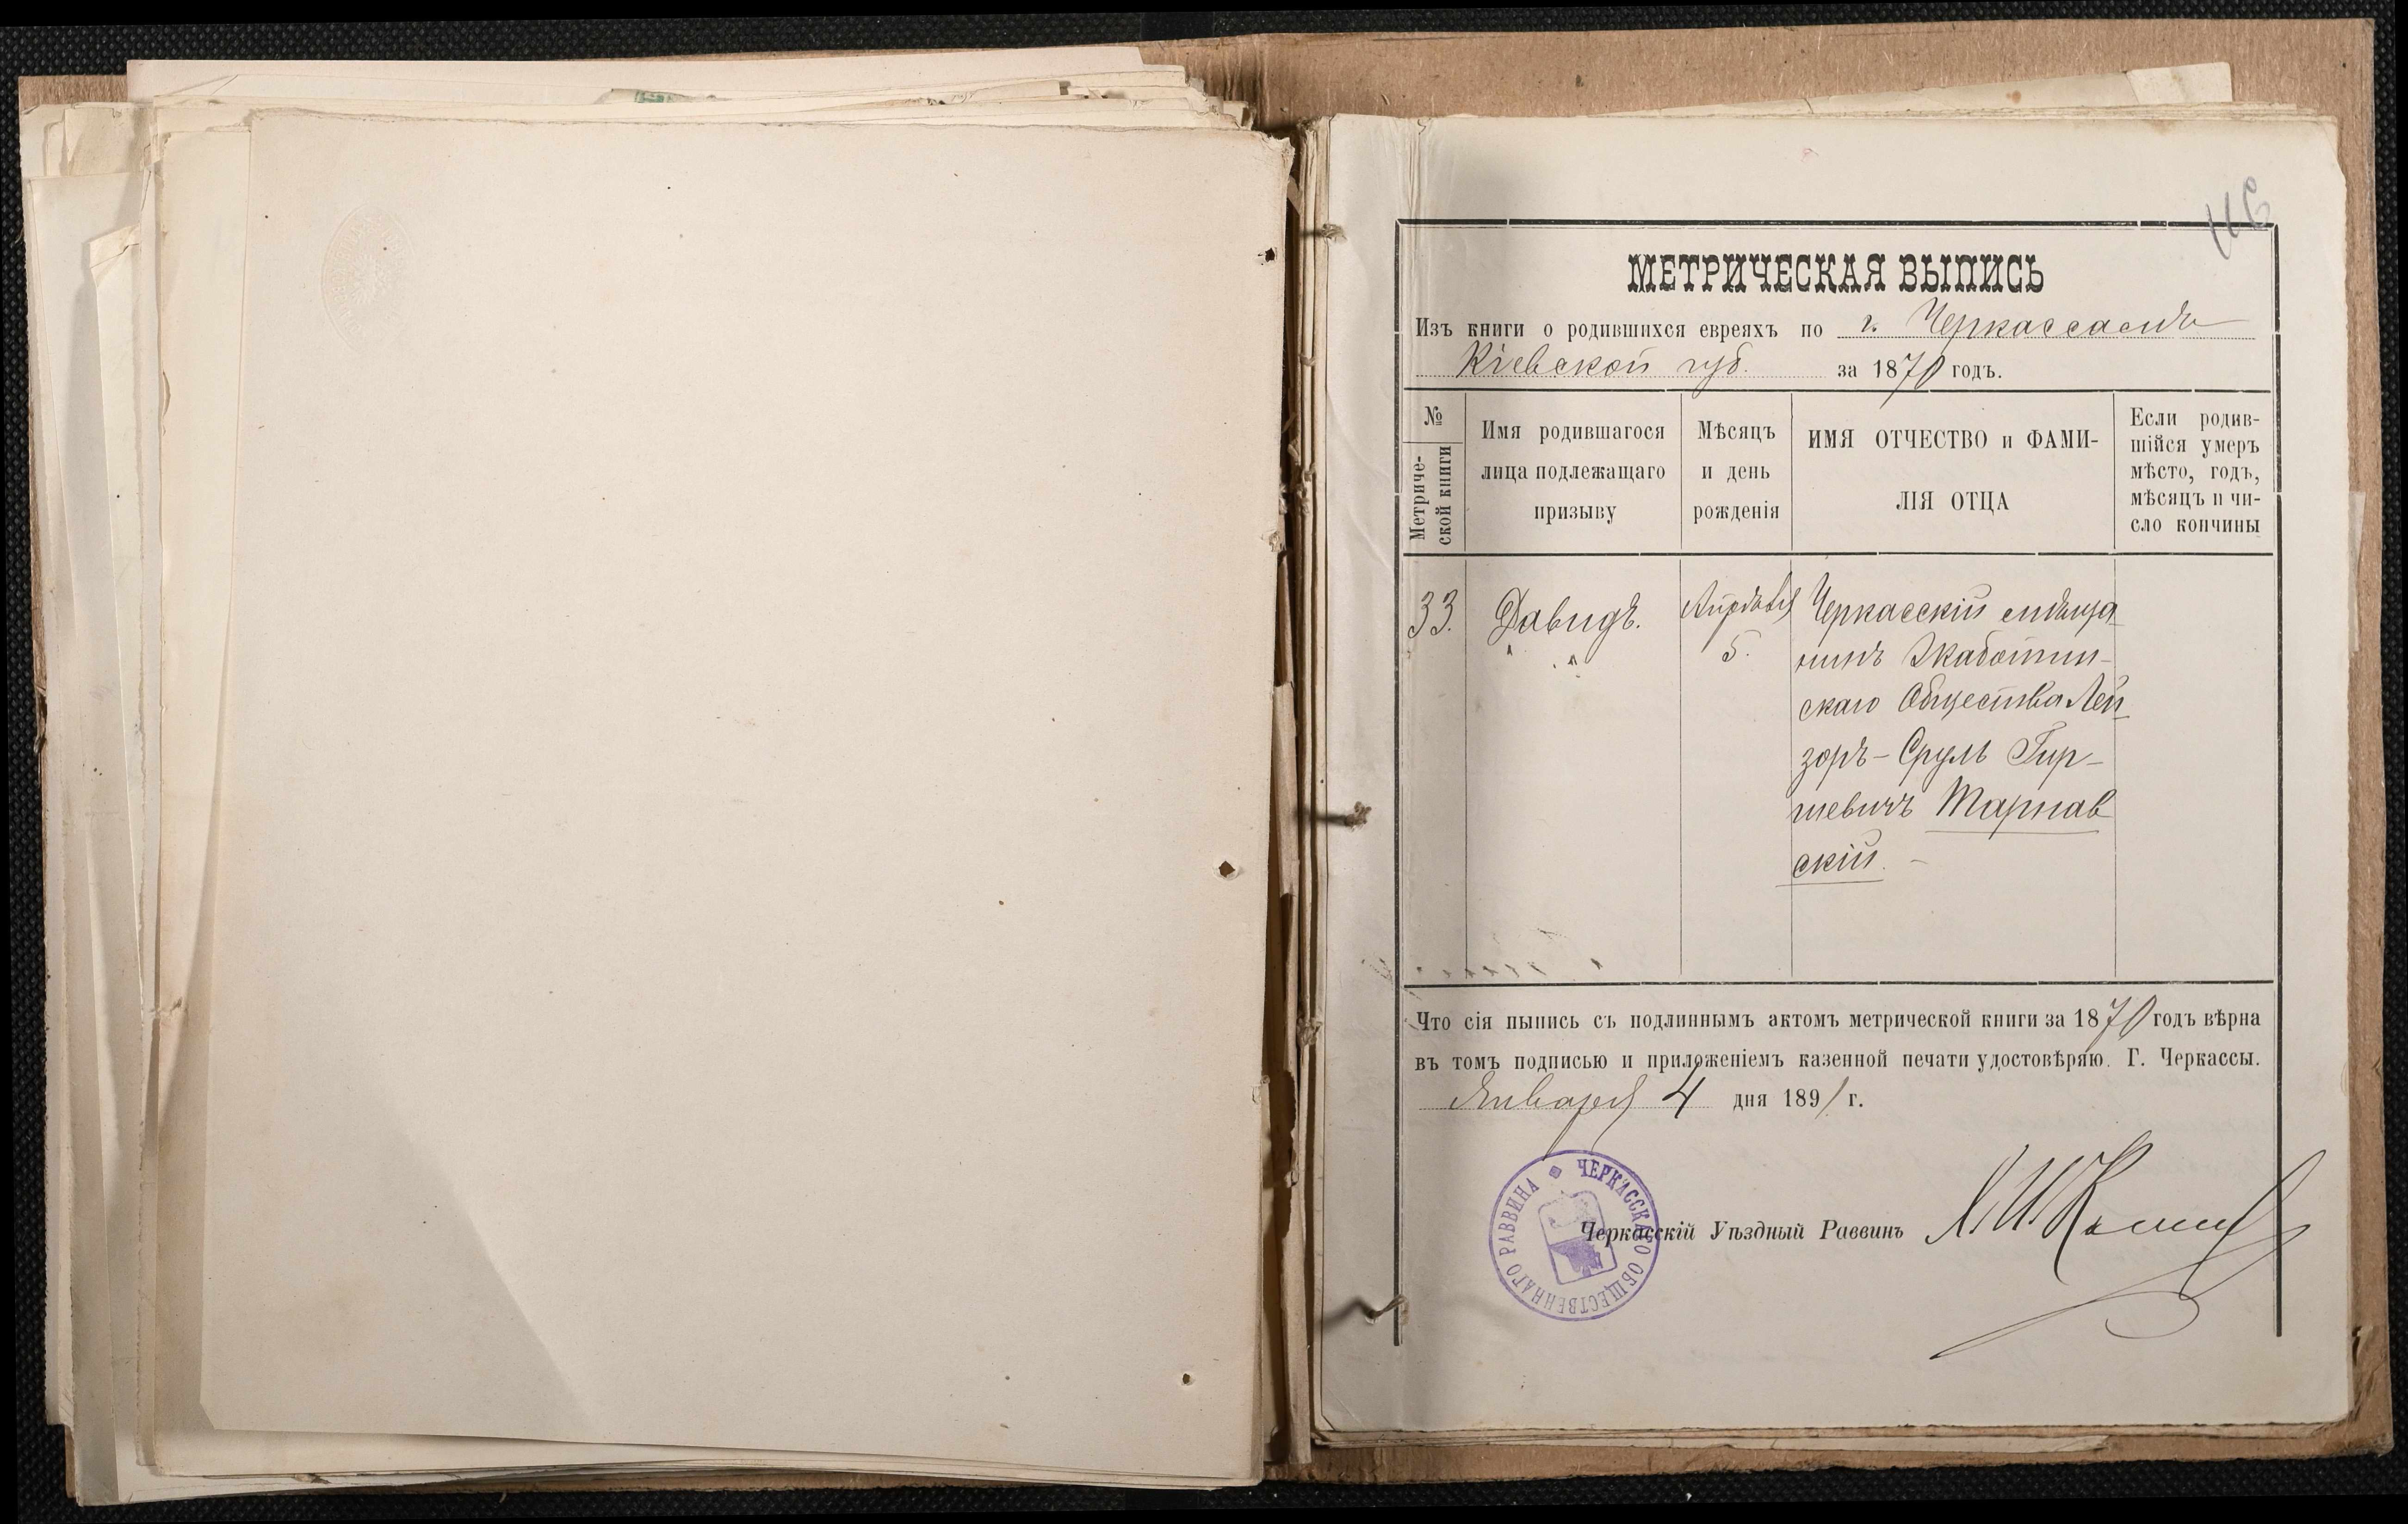 116
МЕТРИЧЕСКАЯ ВЫПИСЬ
Изъ книги о родившихся евреяхъ по г. Черкассамъ
Кіевской губ. за 1870 годъ.
№ Метриче-
ской книги
Имя родившагося
лица подлежащаго
призыву
Мѣсяцъ
и день
рожденія
ИМЯ ОТЧЕСТВО и ФАМИ-
ЛІЯ ОТЦА
Если родив-
шійся умеръ
мѣсто, годъ,
мѣсяцъ и чи-
сло кончины
33.
Давидъ.
Апрѣля
5.
Черкасскій мѣща
нинъ Жаботин-
скаго Общества Лей
зоръ-Сруль Гир-
шевичъ Тарнав
скій. -
Что сія выпись съ подлиннымъ актомъ метрической книги за 1870 годъ вѣрна
въ томъ подписью и приложеніемъ казенной печати удостовѣряю. Г. Черкассы.
Января 4 дня 1891 г.
Черкасскій Уѣздный Раввинъ
ЧЕРКАССКАГО ОБЩЕСТВЕННАГО РАВВИНА